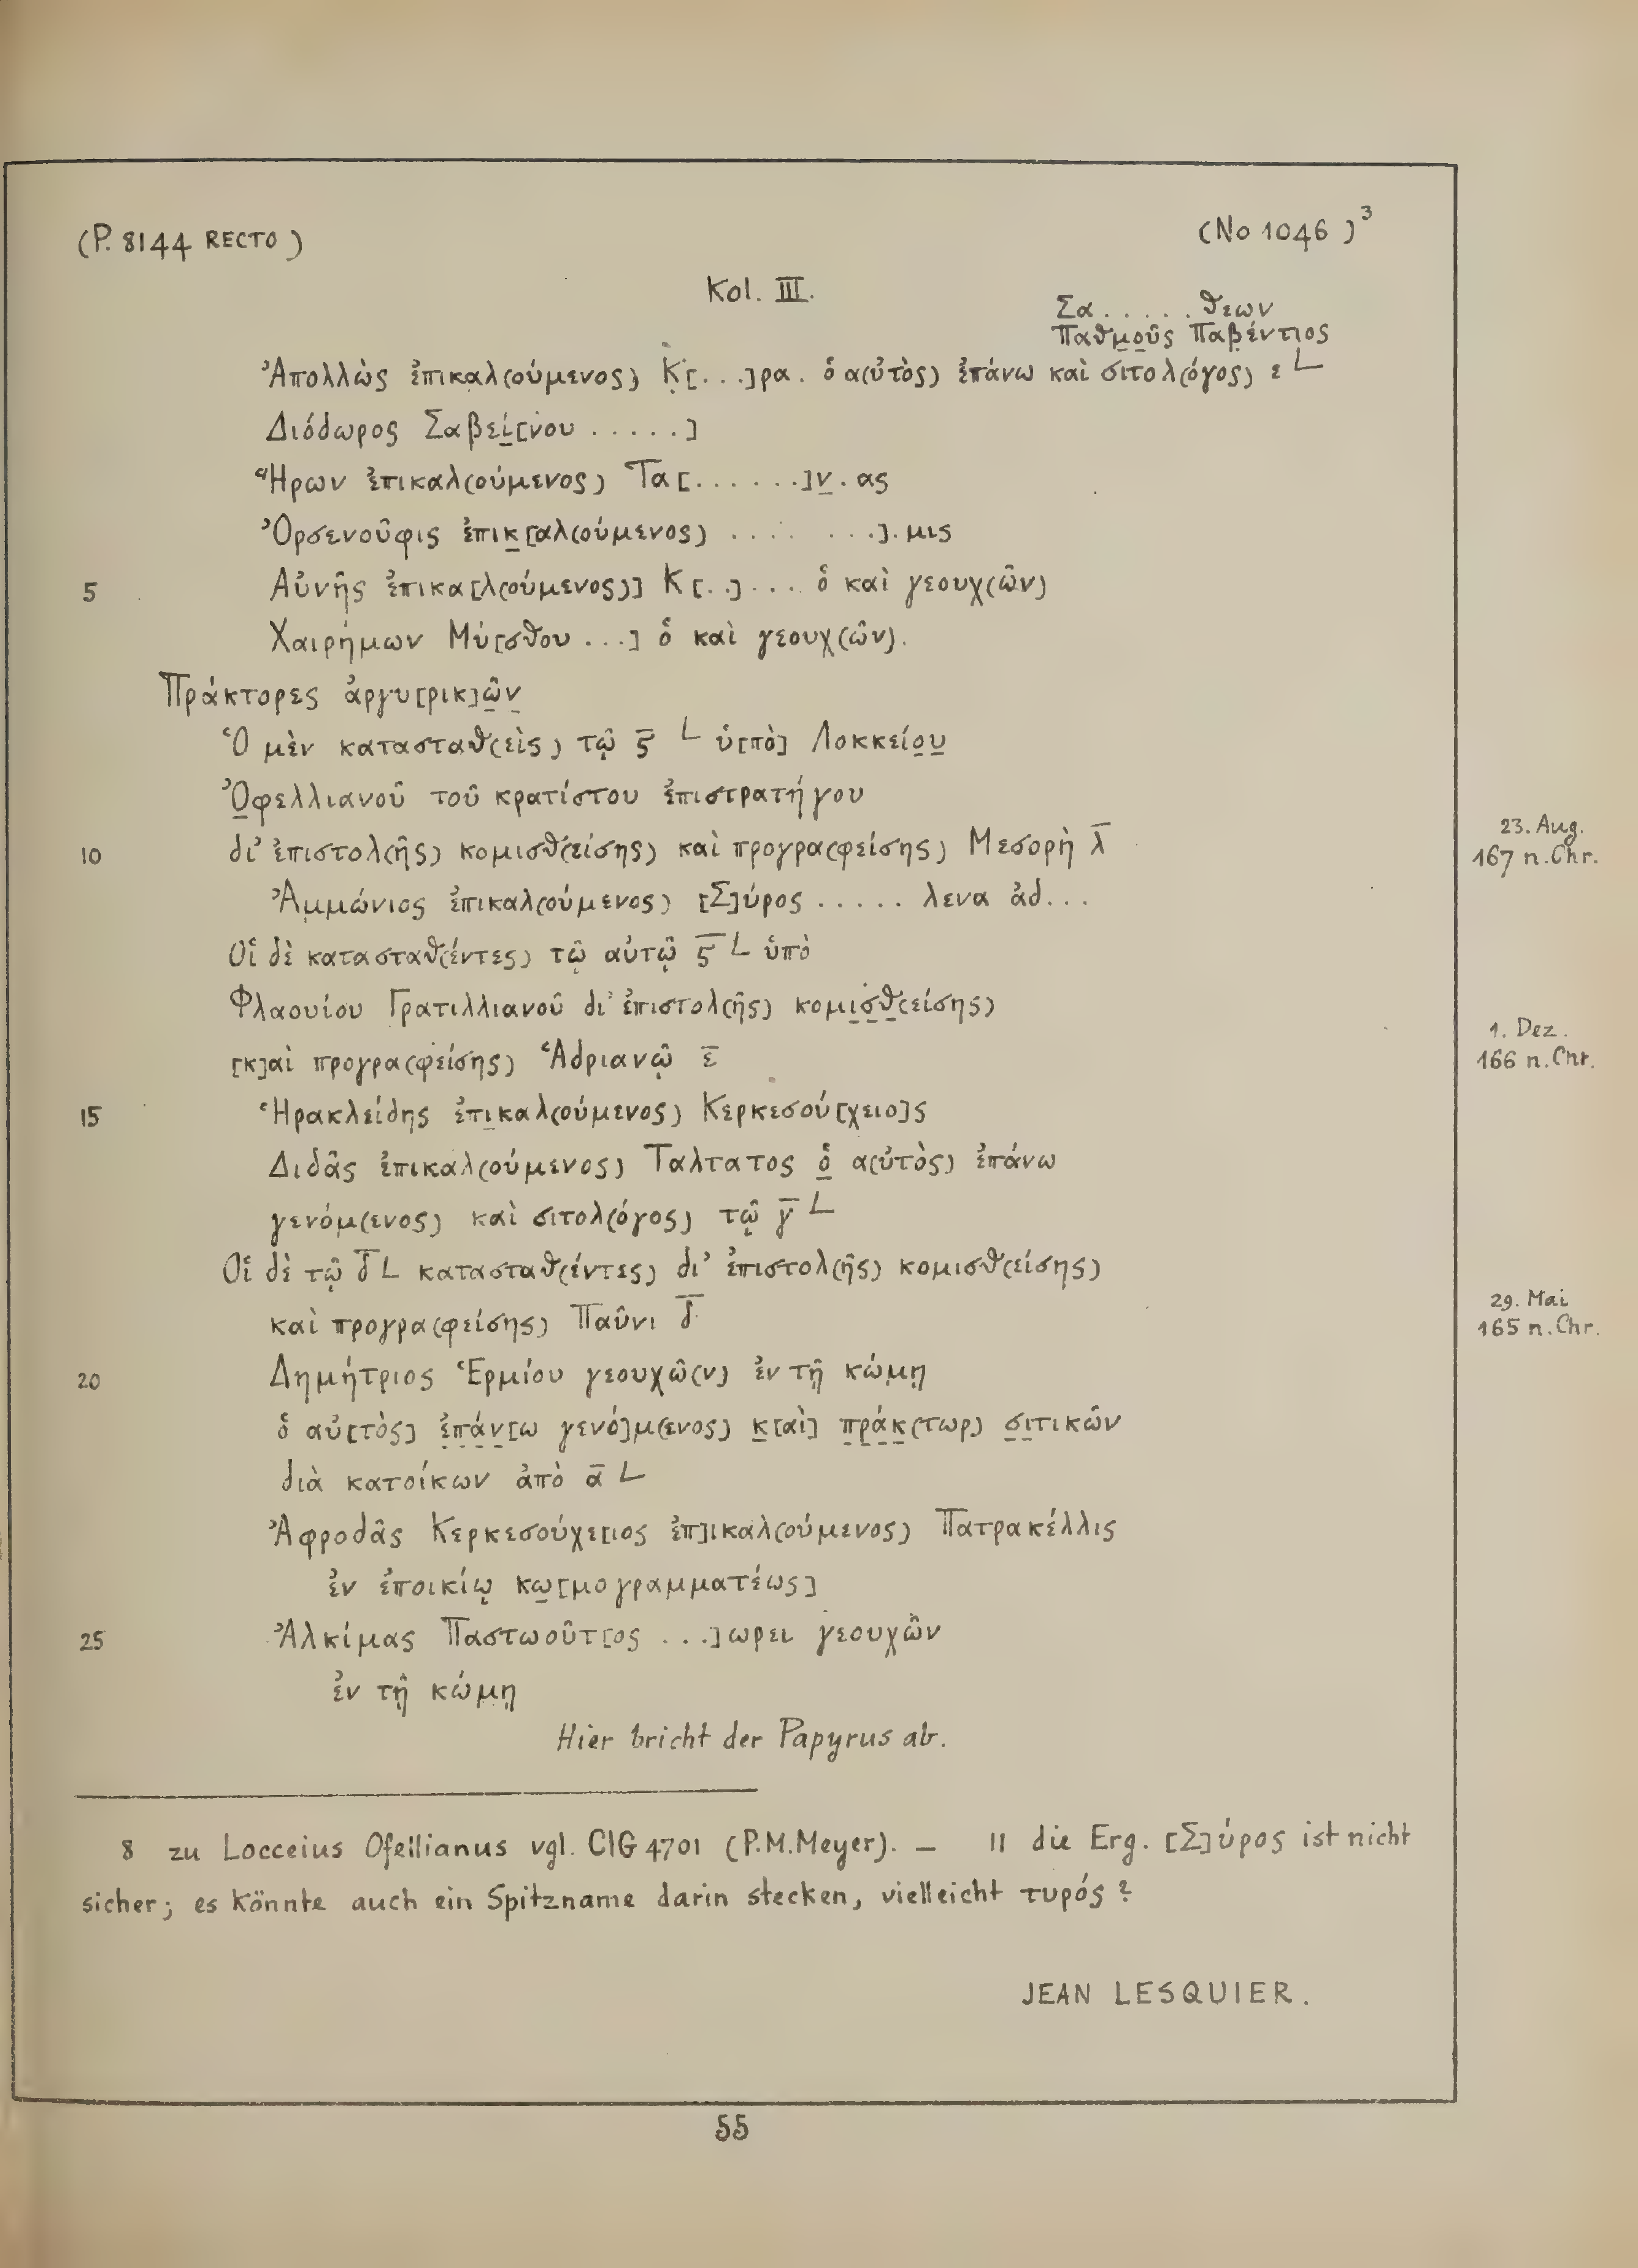 (P. 8144 RECTO)
(No 1046)³
Kol. III.
Σα . . . . . θεων
Παθμοῦς Παβέντιος
Ἀπολλὼς ἐπικαλ(ούμενος) Κ[. . .]ρα. ὁ α(ὐτὸς) ἐπάνω καὶ σιτολ(όγος) ε L
Διόδωρος Σαβεί[νου . . . . .]
Ἥρων ἐπικαλ(ούμενος) Τα[. . . . . .]ν . ας
Ὀρσενοῦφις ἐπικ[αλ(ούμενος) . . . . . . .] . μις
5 Αὐνῆς ἐπικα[λ(ούμενος)] Κ[. .] . . . . ὁ καὶ γεουχ(ῶν)
Χαιρήμων Μύ[σθου . . .] ὁ καὶ γεουχ(ῶν).
Πράκτορες ἀργυ[ρικ]ῶν
Ὁ μὲν κατασταθ(εὶς) τῷ ϛ̅ L ὑ[πὸ] Λοκκείου
Ὀφελλιανοῦ τοῦ κρατίστου ἐπιστρατήγου
10 δι’ ἐπιστολ(ῆς) κομισθ(είσης) καὶ προγρα(φείσης) Μεσορὴ λ̅
23. Aug.
167 n. Chr.
Ἀμμώνιος ἐπικαλ(ούμενος) [Σ]ύρος . . . . . λενα ἀδ . . .
Οἱ δὲ κατασταθ(έντες) τῷ αὐτῷ ϛ̅ L ὑπὸ
Φλαουίου Γρατιλλιανοῦ δι’ ἐπιστολ(ῆς) κομισθ(είσης)
[κ]αὶ προγρα(φείσης) Ἁδριανῷ ε̅
1. Dez.
166 n. Chr.
15 Ἡρακλείδης ἐπικαλ(ούμενος) Κερκεσού[χειο]ς
Διδᾶς ἐπικαλ(ούμενος) Ταλτατος ὁ α(ὐτὸς) ἐπάνω
γενόμ(ενος) καὶ σιτολ(όγος) τῷ γ̅ L
Οἱ δὲ τῷ δ̅ L κατασταθ(έντες) δι’ ἐπιστολ(ῆς) κομισθ(είσης)
καὶ προγρα(φείσης) Παῦνι δ̅
29. Mai
165 n. Chr.
20 Δημήτριος Ἑρμίου γεουχῶ(ν) ἐν τῇ κώμῃ
ὁ αὐ[τὸς] ἐπάν[ω γενό]μ(ενος) κ[αὶ] πράκ(τωρ) σιτικῶν
διὰ κατοίκων ἀπὸ α̅ L
Ἀφροδᾶς Κερκεσούχε[ιος ἐπ]ικαλ(ούμενος) Πατρακέλλις
ἐν ἐποικίῳ κω[μογραμματέως]
25 Ἀλκίμας Παστωοῦτ[ος . . .]ωρει γεουχῶν
ἐν τῇ κώμῃ
Hier bricht der Papyrus ab.
8 zu Locceius Ofellianus vgl. CIG 4701 (P.M.Meyer). — 11 die Erg. [Σ]ύρος ist nicht
sicher; es könnte auch ein Spitzname darin stecken, vielleicht τυρός?
JEAN LESQUIER.
55